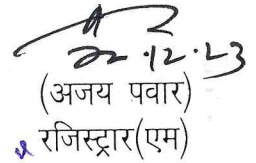 22.12.23
(अजय पवार)
रजिस्ट्रार(एम)